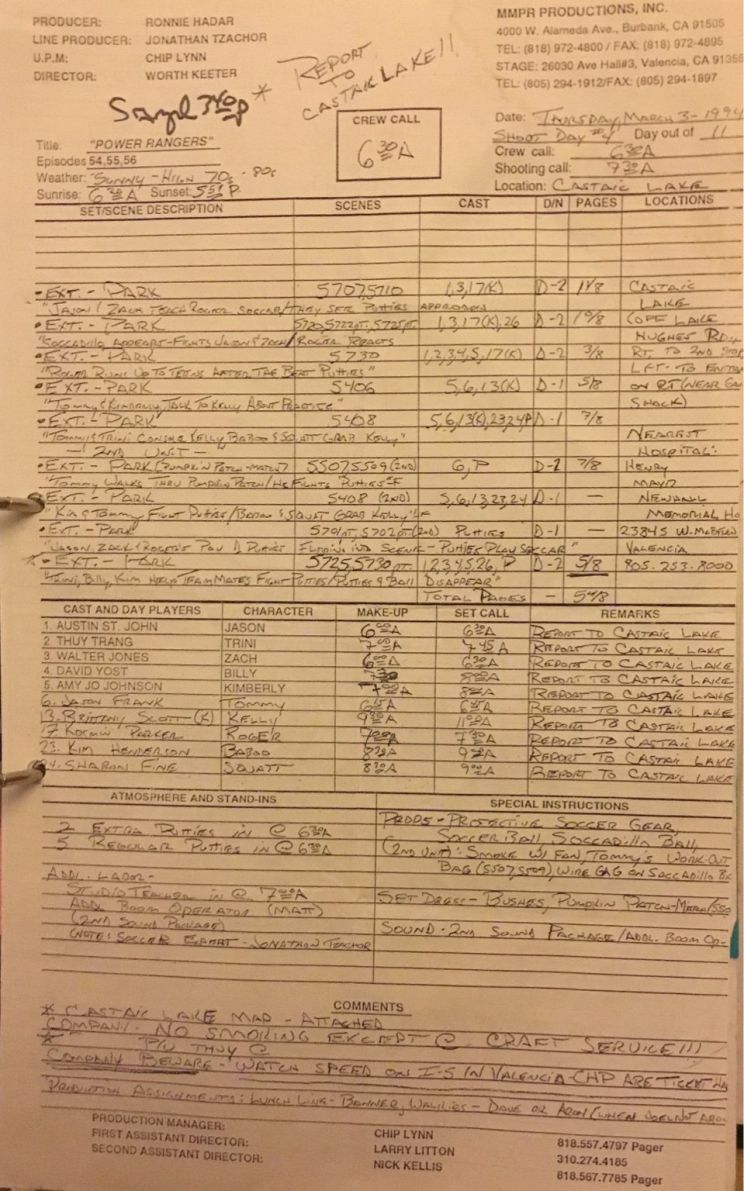 PRODUCER: RONNIE HADAR
LINE PRODUCER: JONATHAN TZACHOR
U.P.M: CHIP LYNN
DIRECTOR: WORTH KEETER
MMPR PRODUCTIONS, INC.
4000 W. Alameda Ave., Burbank, CA 91505
TEL: (818) 972-4800 / FAX: (818) 972-4895
STAGE: 26030 Ave Hall#3, Valencia, CA 91355
TEL: (805) 294-1912/FAX: (805) 294-1897
* REPORT TO CASTAIC LAKE!!
CREW CALL
6 30 A
Date: THURSDAY, MARCH 3-1994
SHOOT DAY #4 Day out of 11
Crew call: 6 30 A
Shooting call: 7 30 A
Location: CASTAIC LAKE
Title: "POWER RANGERS"
Episodes 54,55,56
Weather: SUNNY - HIGH 70s - 80s
Sunrise: 6 20 A Sunset: 5 51 P
SET/SCENE DESCRIPTION SCENES CAST D/N PAGES LOCATIONS
• EXT. - PARK 5707,5710 1,3,17(K) D-2 1 1/8 CASTAIC
"JASON/ZACH TEACH ROGER SOCCER/THEY SEE PUTTIES APPROACH LAKE
• EXT. - PARK 5720,5722PT, 5725PT 1,3,17(K),26 D-2 (OFF LAKE
"SOCCADILLO APPEARS-FIGHTS JASON & ZACH/ROGER REACTS HUGHES RD.,
• EXT. - PARK 5730 1,2,3,4,5,17(K) D-2 3/8 RT. TO 2ND STOP
"ROGER RUNS UP TO TEENS AFTER THE BEAT PUTTIES" LFT. TO ENTER
• EXT. - PARK 5406 5,6,13(K) D-1 5/8 ON RT (NEAR
"TOMMY & KIMBERLY TALK TO KELLY ABOUT PRACTICE" SHACK)
• EXT. - PARK 5408 5,6,13(K),23,24,P D-1 7/8
"TOMMY & TRINI CONSOLE KELLY BABOO & SQUATT GRAB KELLY" NEAREST
- 2ND UNIT - HOSPITAL:
• EXT. - PARK (PUMPKIN PATCH-MATCH) 5507,5509 (2ND) 6,P D-2 7/8 HENRY
"TOMMY WALKS THRU PUMPKIN PATCH/HE FIGHTS PUTTIES" MAYO
• EXT. - PARK 5408 (2ND) 5,6,13,23,24 D-1 — NEWHALL
"KIM & TOMMY FIGHT PUTTIES/BABOO & SQUATT GRAB KELLY" MEMORIAL HO
• EXT. - PARK 5701PT, 5702PT (2ND) PUTTIES D-1 — 23845 W. McBEAN
"JASON, ZACK & ROGER'S POV PUTTIES FLIPPING INTO SCENE - PUTTIES PLAY SOCCAR" VALENCIA
• EXT. - PARK 5725,5730 PT. 1,2,3,4,5,26,P D-2 5/8 805.253.8000
"TRINI, BILLY, KIM HELP TEAM MATES FIGHT PUTTIES/PUTTIES & BALL DISAPPEAR"
TOTAL PAGES — 5 4/8
CAST AND DAY PLAYERS CHARACTER MAKE-UP SET CALL REMARKS
1. AUSTIN ST. JOHN JASON 6 00 A 6 30 A REPORT TO CASTAIC LAKE
2. THUY TRANG TRINI 7 00 A 7 45 A REPORT TO CASTAIC LAKE
3. WALTER JONES ZACH 6 00 A 6 30 A REPORT TO CASTAIC LAKE
4. DAVID YOST BILLY 7 30 8 00 A REPORT TO CASTAIC LAKE
5. AMY JO JOHNSON KIMBERLY 7 00 A 8 00 A REPORT TO CASTAIC LAKE
6. JASON FRANK TOMMY 6 15 A 6 45 A REPORT TO CASTAIC LAKE
13. BRITTANY SCOTT (K) KELLY 9 30 A 11 00 A REPORT TO CASTAIC LAKE
17 PARKER ROGER 7 00 A 7 30 A REPORT TO CASTAIC LAKE
23. KIM HENDERSON BABOO 8 30 A 9 00 A REPORT TO CASTAIC LAKE
24. SHARON FINE SQUATT 8 30 A 9 00 A REPORT TO CASTAIC LAKE
ATMOSPHERE AND STAND-INS SPECIAL INSTRUCTIONS
2 EXTRA PUTTIES IN @ 6 30 A
5 REGULAR PUTTIES IN @ 6 30 A
ADDL. LABOR-
STUDIO TEACHER IN @ 7 00 A
ADDL BOOM OPERATOR (MATT)
(2ND SOUND PACKAGE)
(NOTE: SOCCER EXPERT - JONATHON TZACHOR
PROPS - PROTECTIVE SOCCER GEAR,
SOCCER BALL SOCCADILLO BALL,
(2ND UNIT): SMOKE W/ FAN, TOMMY'S WORK-OUT
BAG (5507,5509), WIRE GAG ON SOCCADILLO
SET DRESS - BUSHES, PUMPKIN PATCH-MATCH/550
SOUND - 2ND SOUND PACKAGE/ADDL. BOOM OP-
COMMENTS
* CASTAIC LAKE MAP - ATTACHED
COMPANY - NO SMOKING EXCEPT @ CRAFT SERVICE!!!
* P/U THUY @
COMPANY BEWARE - WATCH SPEED ON I-5 IN VALENCIA-CHP ARE TICKET HA
PRODUCTION ASSIGNMENTS: LUNCH LINE - BANNER, WALKIES - DAVE OR ARON (WHEN DOES NOT
PRODUCTION MANAGER: CHIP LYNN 818.557.4797 Pager
FIRST ASSISTANT DIRECTOR: LARRY LITTON 310.274.4185
SECOND ASSISTANT DIRECTOR: NICK KELLIS 818.567.7785 Pager